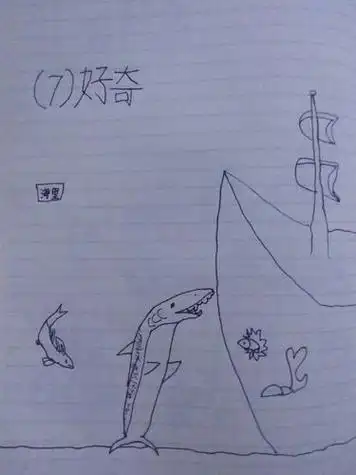 (7)好奇
海里